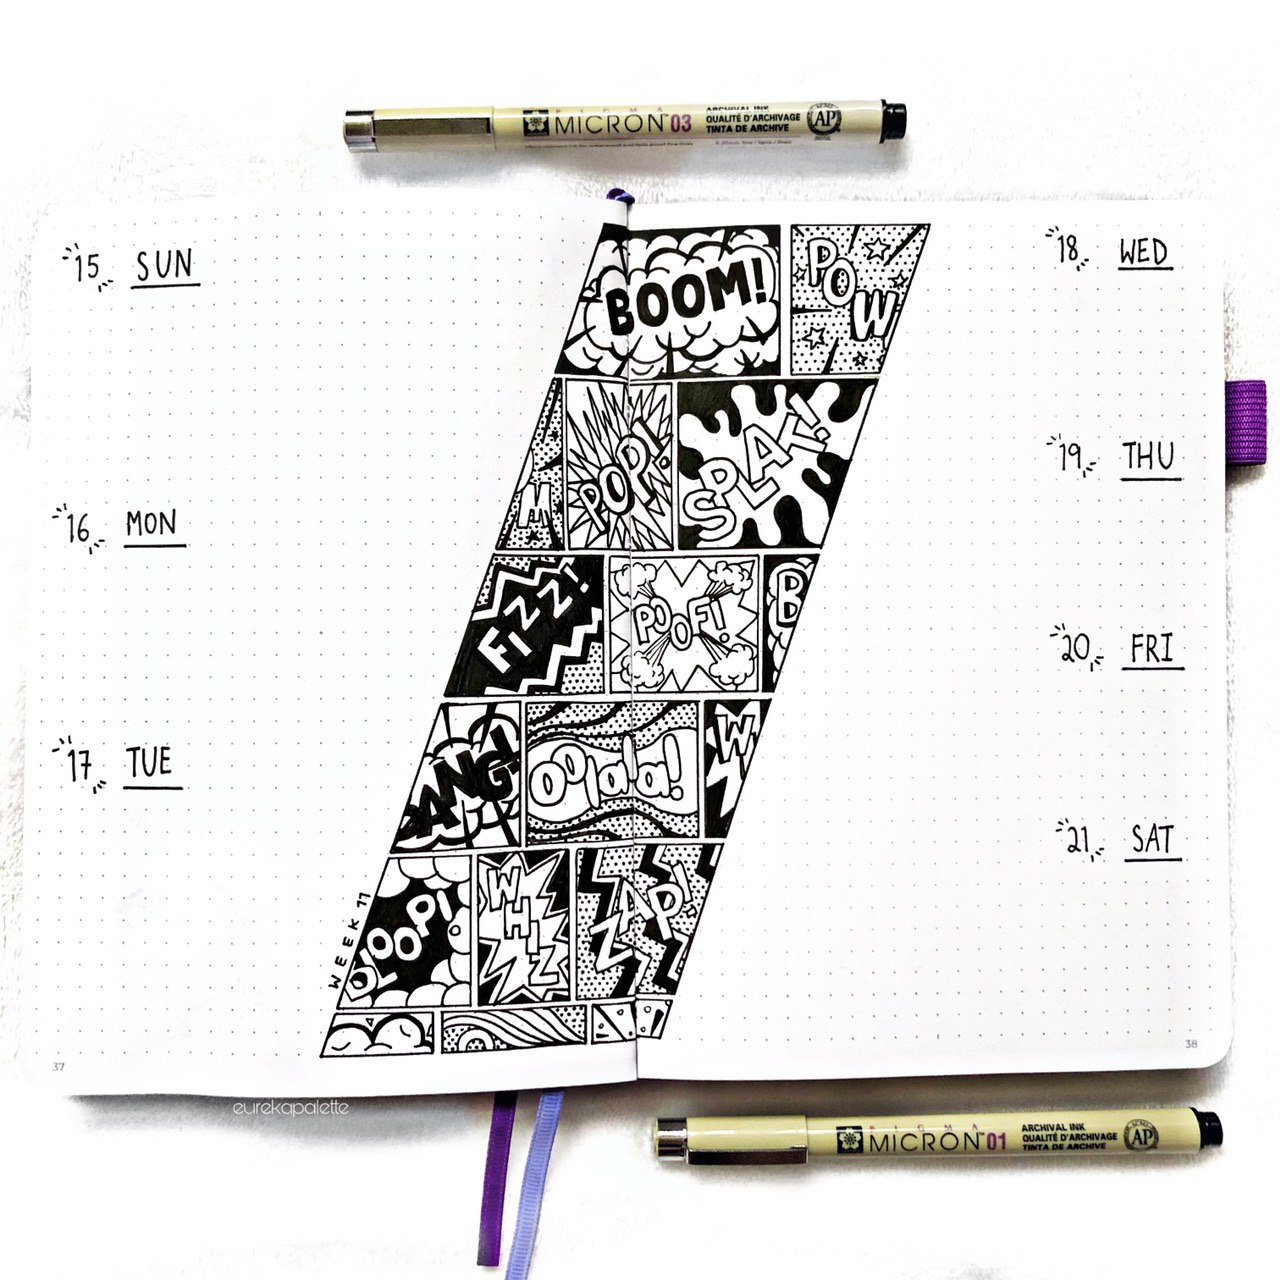 PIGMA
MICRON™ 03
ARCHIVAL INK
QUALITÉ D'ARCHIVAGE
TINTA DE ARCHIVE
AP
15 SUN
16 MON
17 TUE
BOOM!
POW
M
POP!
SPLAT!
FIZZ!
POOF!
B
BANG!
Oolala!
W
BLOOP!
WHIZ
ZAP!
!
WEEK 11
18 WED
19 THU
20 FRI
21 SAT
37
38
eurekapalette
PIGMA
MICRON™ 01
ARCHIVAL INK
QUALITÉ D'ARCHIVAGE
TINTA DE ARCHIVE
AP